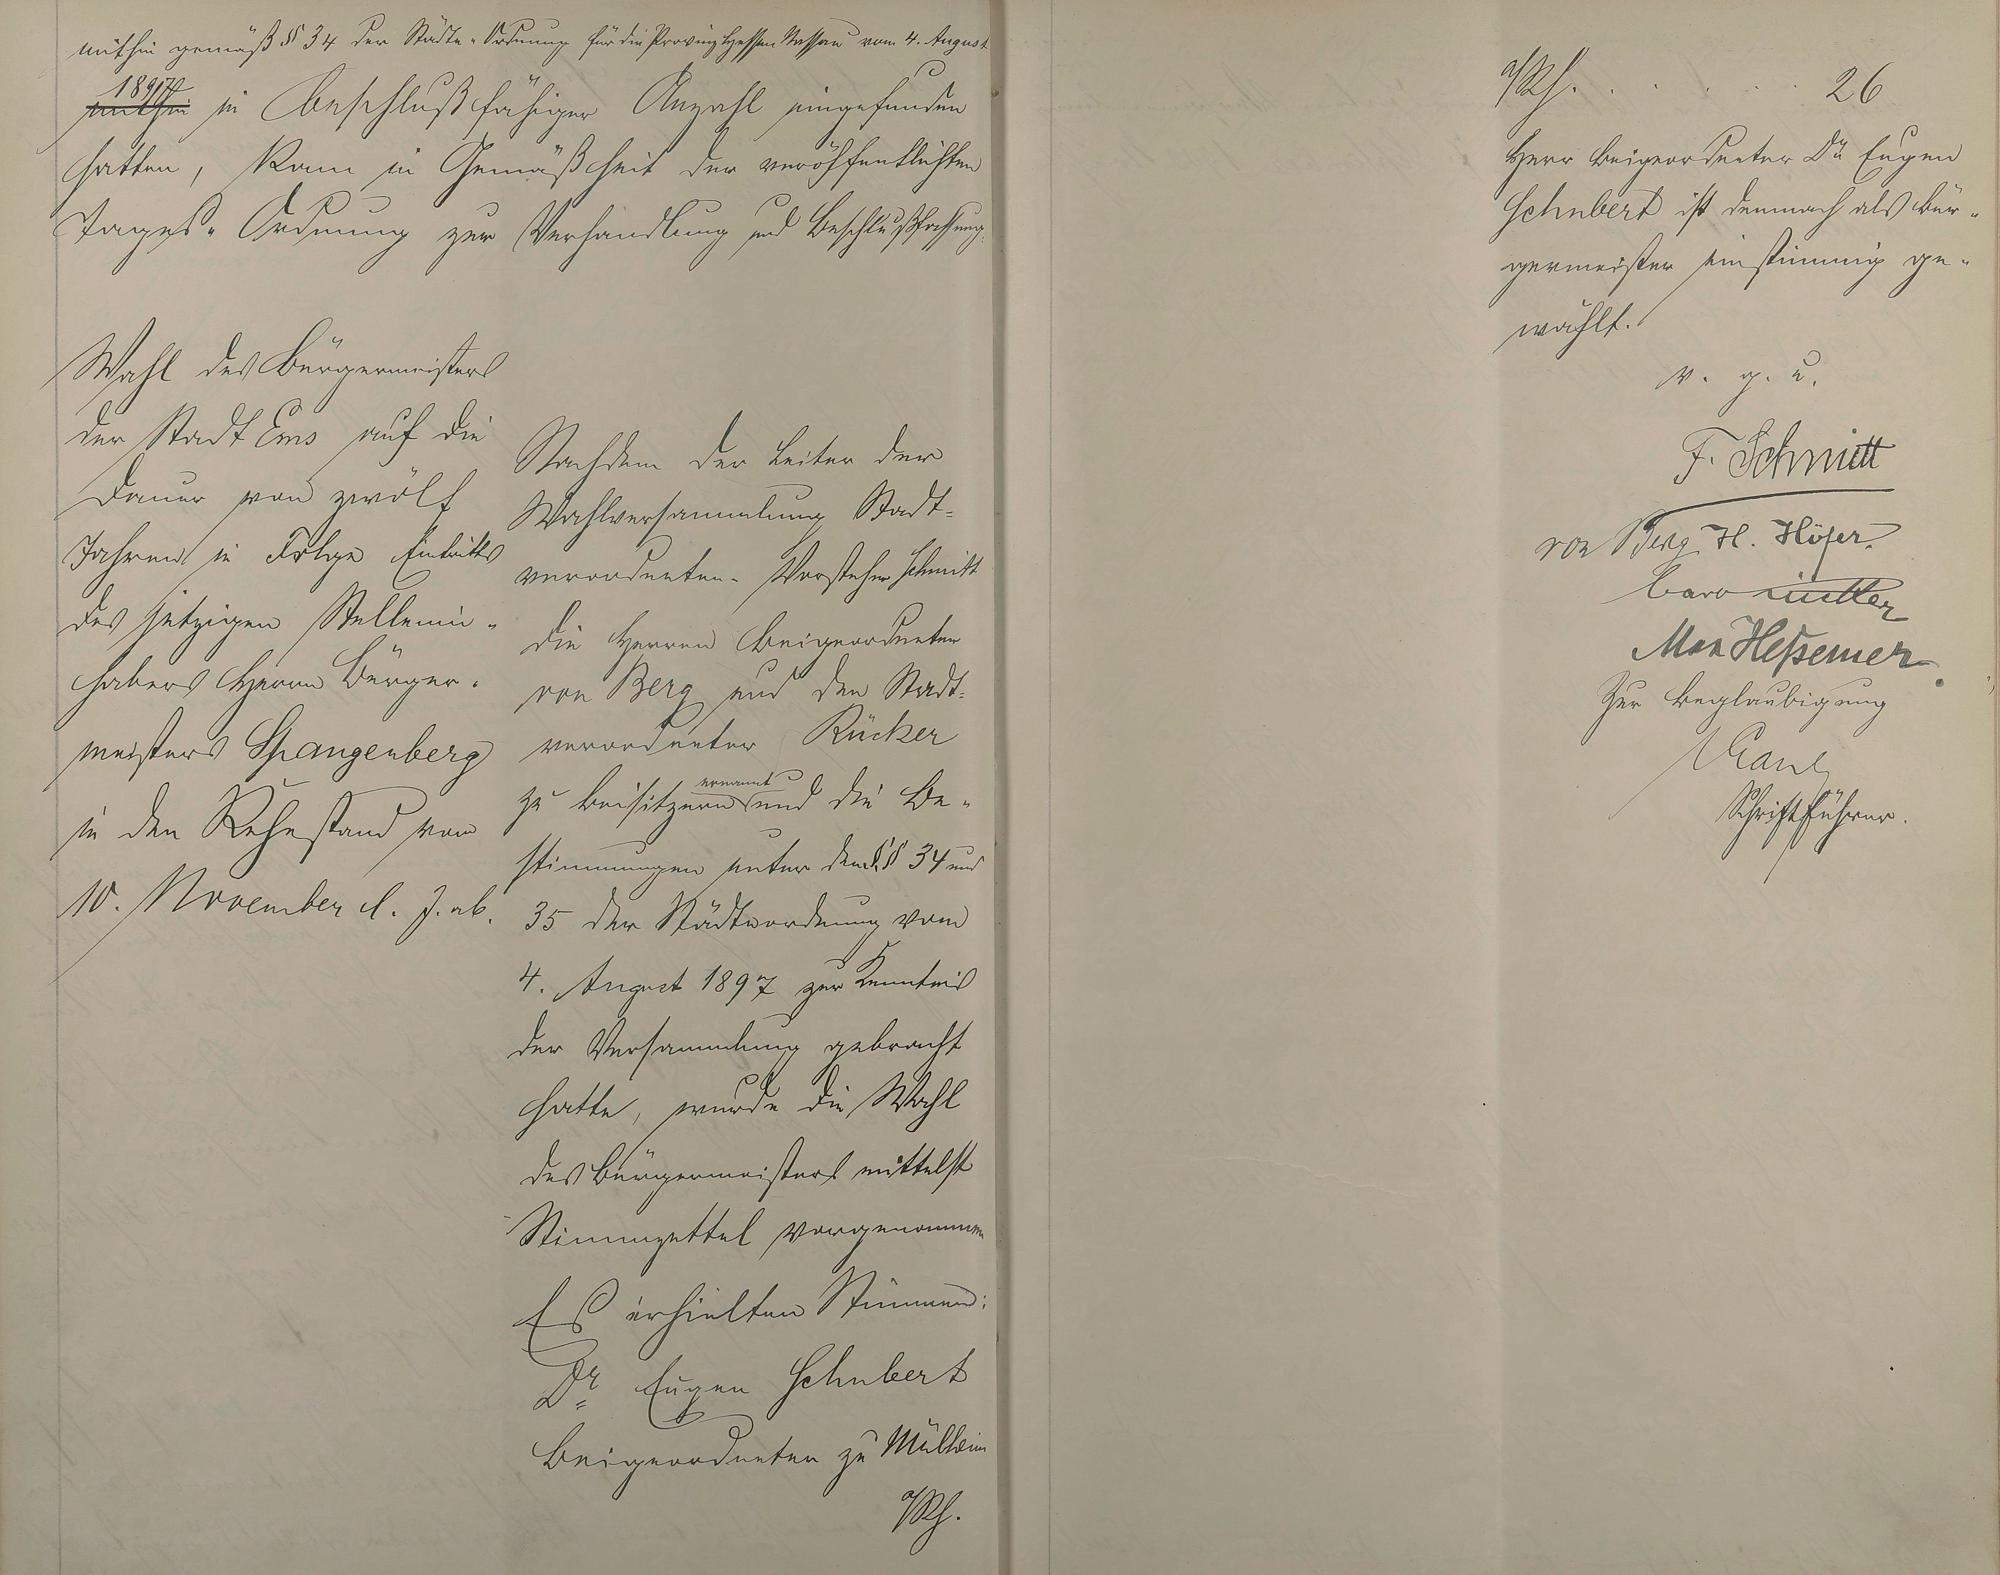 mithin gemäß §§ 34 der Städte-Ordnung für die Provinz Hessen Nassau vom 4. August
1897
mithin in beschlußfähiger Anzahl eingefunden
hatten, kam in Gemäßheit der veröffentlichten
Tages-Ordnung zur Verhandlung und Beschlußfassung:
Wahl des Bürgermeisters
der Stadt Ems auf die
Dauer von zwölf
Jahren in Folge Eintritts
des jetzigen Stellenin-
habers Herrn Bürger-
meisters Spangenberg
in den Ruhestand vom
10. November d. J. ab.
Nachdem der Leiter der
Wahlversammlung Stadt-
verordneten-Vorsteher Schmitt
die Herren Beigeordneten
von Berg und den Stadt-
verordneten Rücker
zu Beisitzern ernannt und die Be-
stimmungen unter den §§ 34 und
35 der Städteordnung vom
4. August 1897 zur Kenntnis
der Versammlung gebracht
hatte, wurde die Wahl
des Bürgermeisters mittelst
Stimmzettel vorgenommen
Es erhielten Stimmen:
Dr Eugen Schubert
Beigeordneten zu Mülheim
a/Rh.
a/Rh. . . . . . . 26
Herr Beigeordneter Dr. Eugen
Schubert ist demnach als Bür-
germeister einstimmig ge-
wählt.
v. g. u.
F. Schmitt
von Berg H. Höfer.
Max Heßemer
Zur Beglaubigung
Schriftführer.